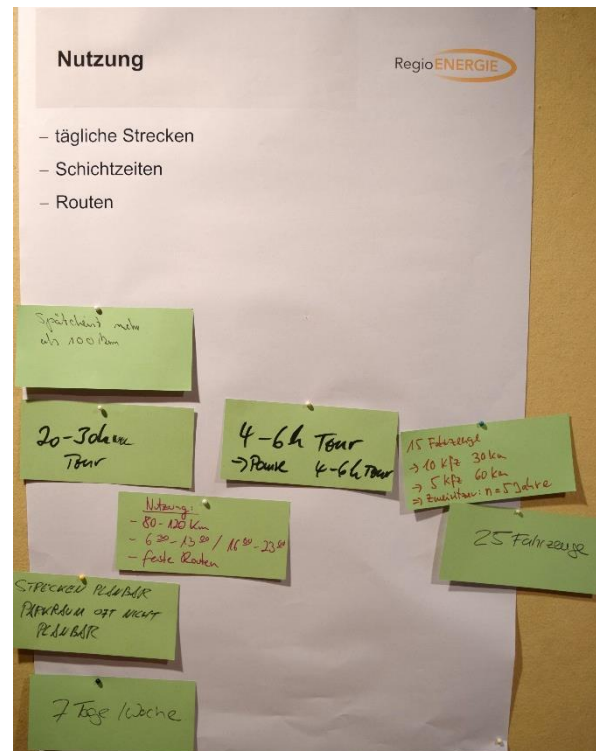 Nutzung
RegioENERGIE
– tägliche Strecken
– Schichtzeiten
– Routen
Spätdienst mehr
als 100 km
20-30 km
Tour
4-6h Tour
→ Pause 4-6h Tour
15 Fahrzeuge
→ 10 Kfz 30 km
→ 5 Kfz 60 km
⇒ : n=5 Jahre
Nutzung:
- 80-120 km
- 6 30 - 13 00 / 16 00 - 23 00
- feste Routen
25 Fahrzeuge
STRECKEN PLANBAR
PARKRAUM OFT NICHT
PLANBAR
7 Tage / Woche